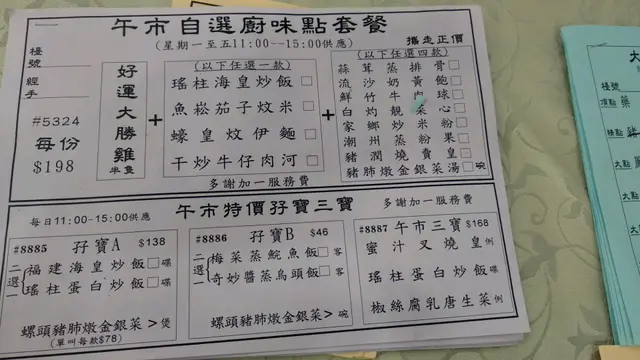 午市自選廚味點套餐
(星期一至五11:00--15:00供應)
攜走正價
檯號
經手
#5324
每份
$198
好運大勝雞
半隻
+
(以下任選一款)
瑤柱海皇炒飯□
魚崧茄子炆米□
蠔皇炆伊麵□
干炒牛仔肉河□
+
(以下任選四款)
蒜茸蒸排骨□
流沙奶黃飽□
鮮竹牛肉球□
白灼靚菜心□
家鄉炒米粉□
潮州蒸粉果□
豬潤燒賣皇□
豬肺燉金銀菜湯□碗
多謝加一服務費
每日11:00-15:00供應
午市特價孖寶三寶
#8885 孖寶A $138
二選一
福建海皇炒飯□碟
瑤柱蛋白炒飯□碟
螺頭豬肺燉金銀菜>煲
(單叫每款$78)
#8886 孖寶B $46
二選一
梅菜蒸鯇魚飯□客
奇妙醬蒸烏頭飯□客
螺頭豬肺燉金銀菜>碗
#8887 午市三寶 $168
蜜汁叉燒皇 例
瑤柱蛋白炒飯 碟
椒絲腐乳唐生菜 例
檯號
頂點
大點
大點